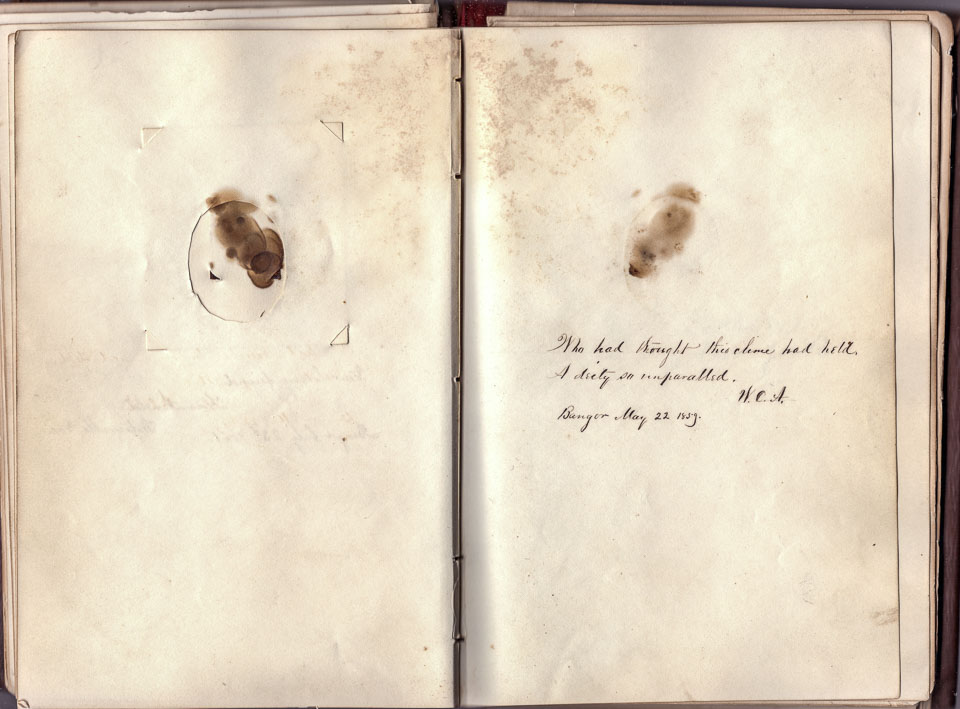 Who had thought this clime had held
A deity so unparalled.
W. C. A.
Bangor May 22 1859.